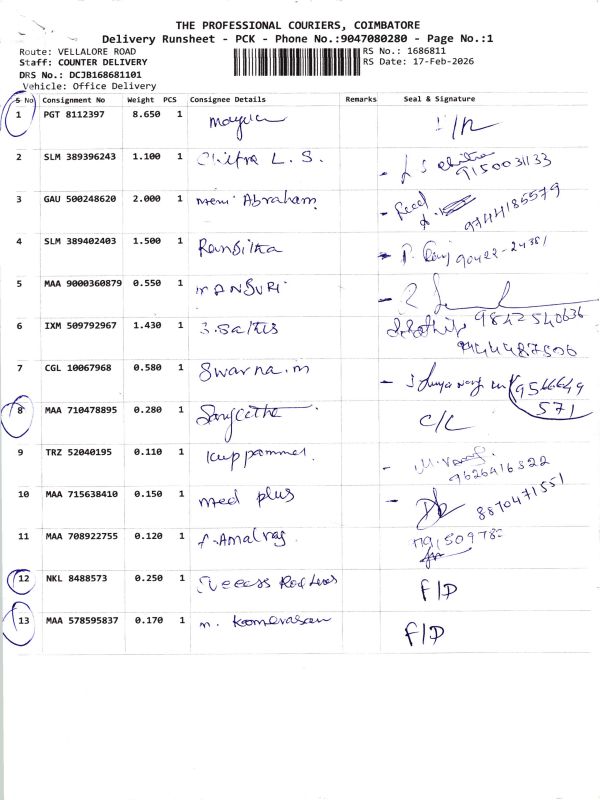 THE PROFESSIONAL COURIERS, COIMBATORE
Delivery Runsheet - PCK - Phone No.:9047080280 - Page No.:1
Route: VELLALORE ROAD
RS No.: 1686811
Staff: COUNTER DELIVERY
RS Date: 17-Feb-2026
DRS No.: DCJB168681101
Vehicle: Office Delivery
S No Consignment No Weight PCS Consignee Details Remarks Seal & Signature
1 PGT 8112397 8.650 1
2 SLM 389396243 1.100 1 Chitra L. S.
9150031133
3 GAU 500248620 2.000 1 Abraham
9744185579
4 SLM 389402403 1.500 1 Ranjitha
5 MAA 9000360879 0.550 1 MANSURI
6 IXM 509792967 1.430 1 9842540636
9444487506
7 CGL 10067968 0.580 1 Swarna.m
571
8 MAA 710478895 0.280 1 Sangeetha C/L
9 TRZ 52040195 0.110 1 Kuppammal.
9626416322
10 MAA 715638410 0.150 1 med plus 8870471551
11 MAA 708922755 0.120 1 Amalraj
12 NKL 8488573 0.250 1 F/D
13 MAA 578595837 0.170 1 n. Komarasan F/D